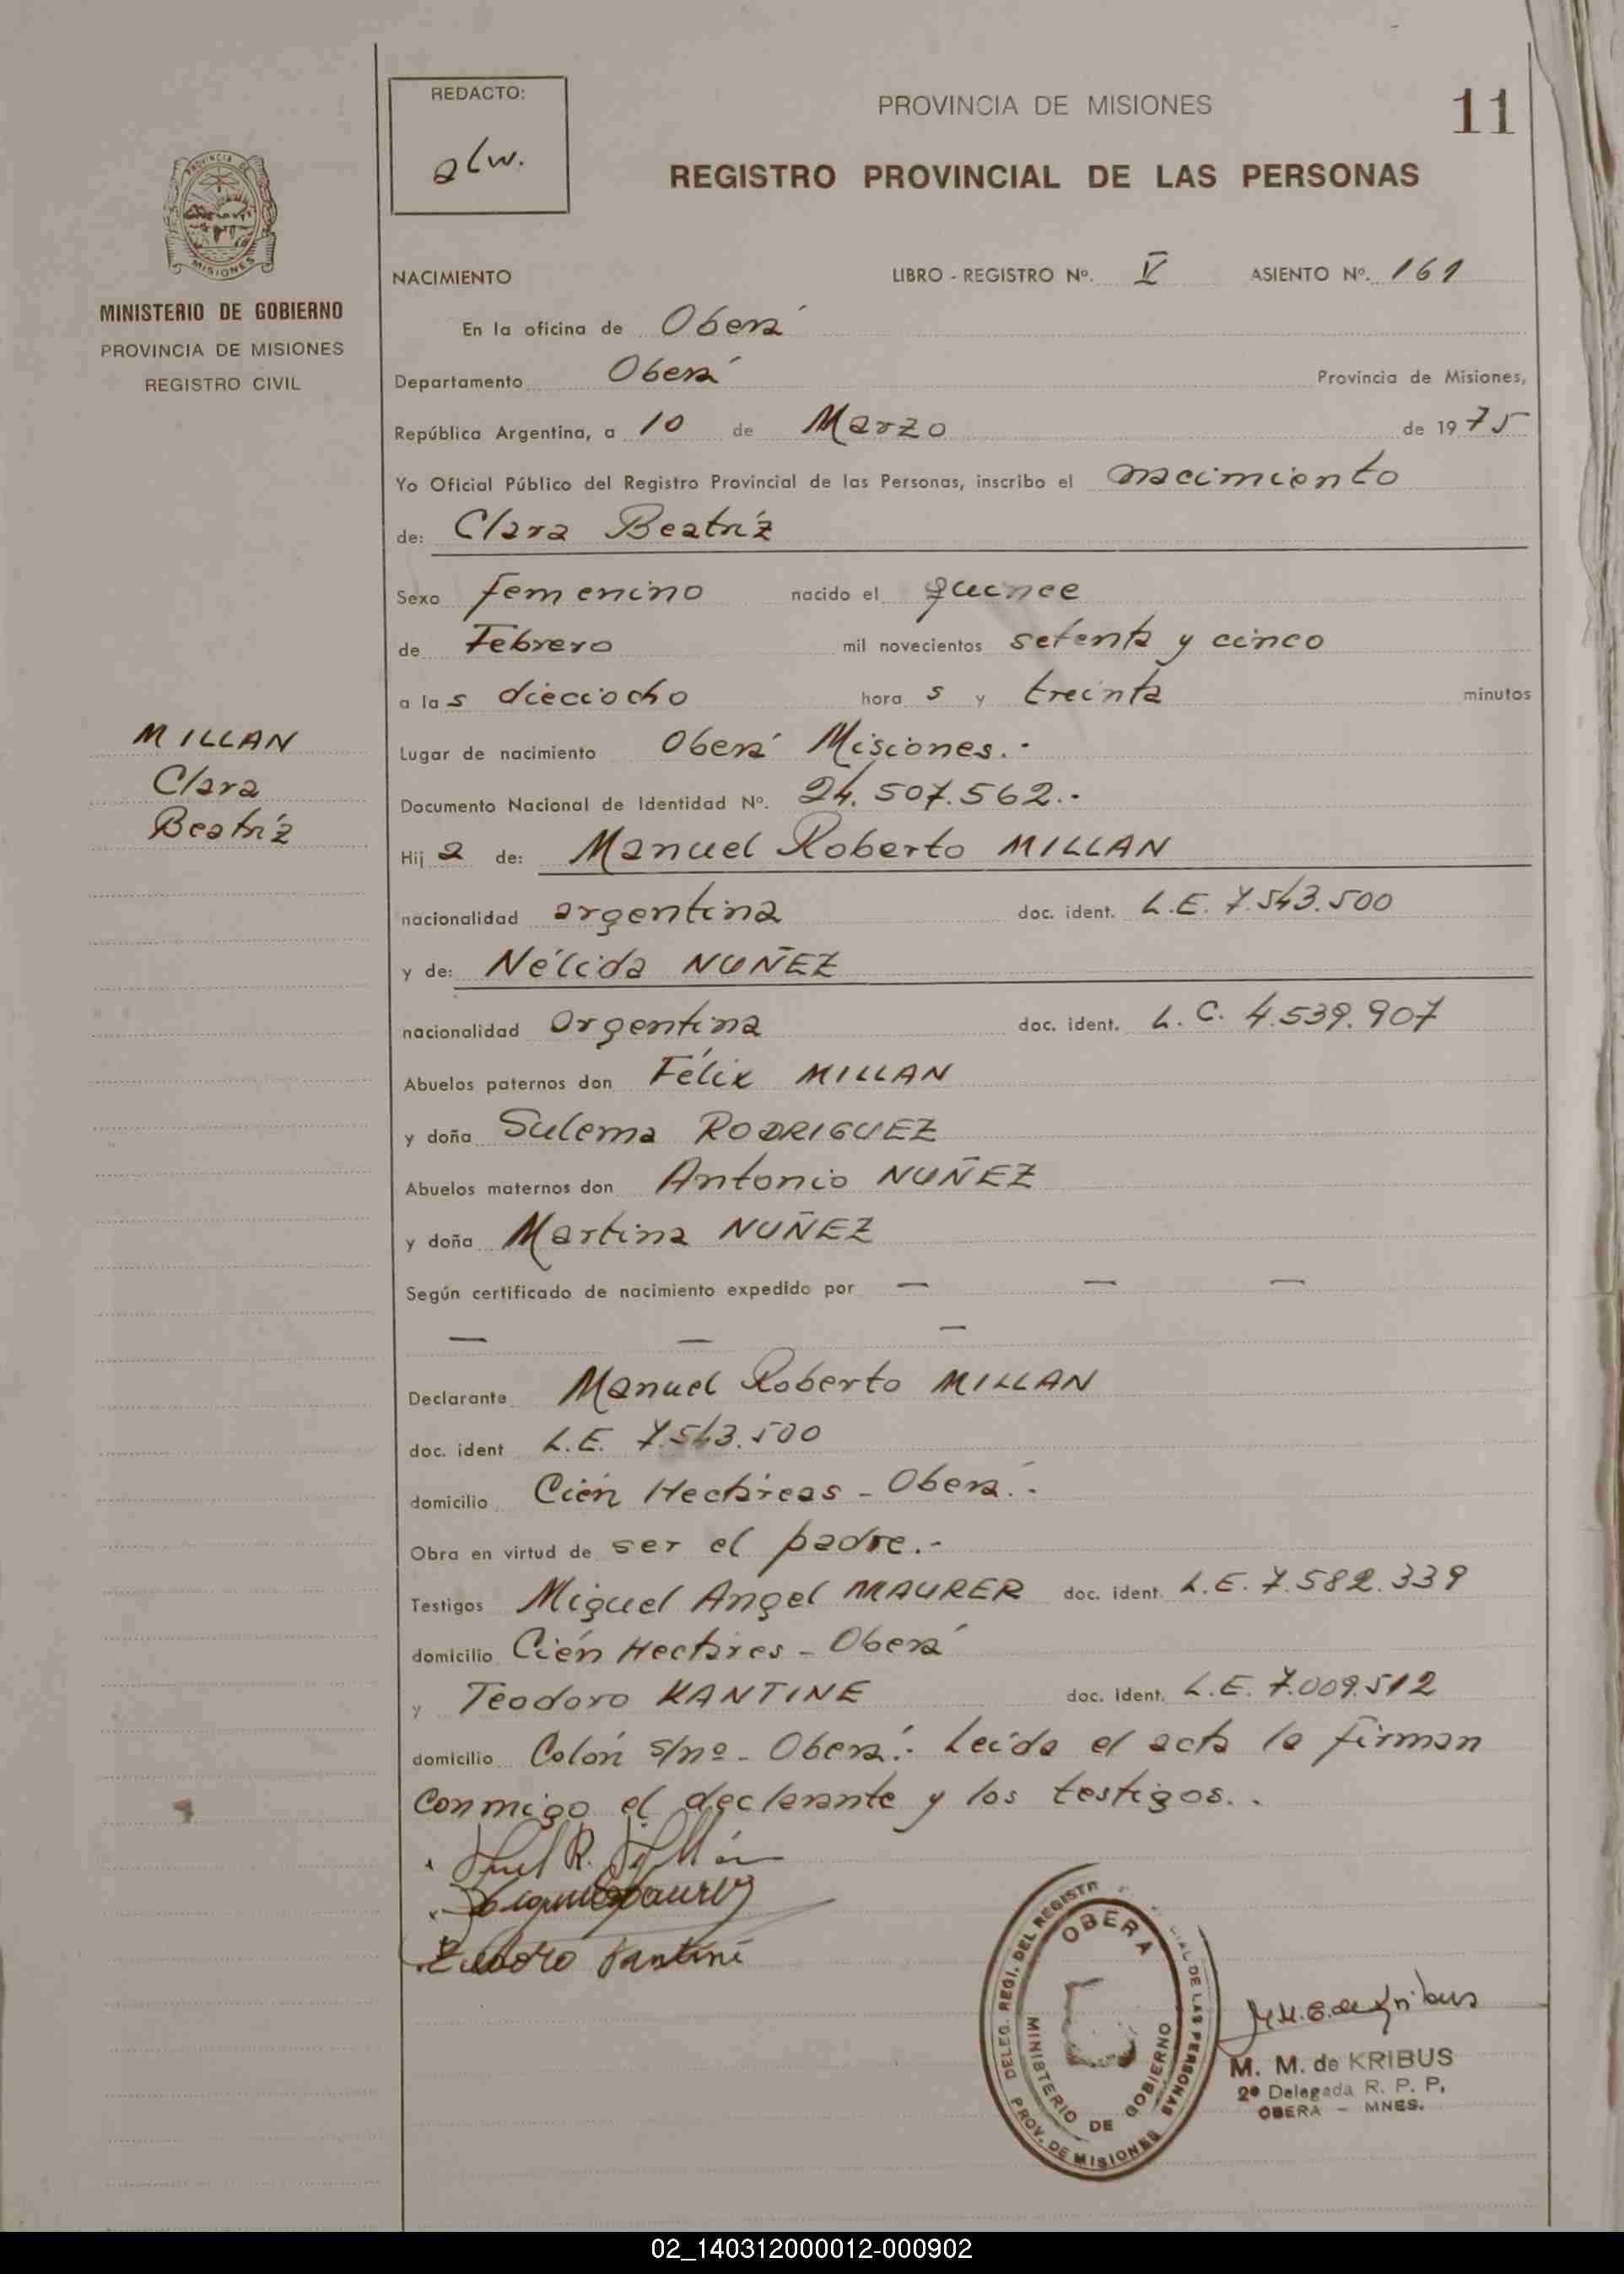 REDACTO:
alw.
PROVINCIA DE MISIONES
11
REGISTRO PROVINCIAL DE LAS PERSONAS
PROVINCIA DE
MISIONES
MINISTERIO DE GOBIERNO
PROVINCIA DE MISIONES
REGISTRO CIVIL
NACIMIENTO LIBRO - REGISTRO Nº. V ASIENTO Nº. 161
En la oficina de Oberá
Departamento Oberá Provincia de Misiones,
República Argentina, a 10 de Marzo de 1975
Yo Oficial Público del Registro Provincial de las Personas, inscribo el nacimiento
de: Clara Beatríz
Sexo femenino nacido el quince
de Febrero mil novecientos setenta y cinco
a las dieciocho horas y treinta minutos
MILLAN
Clara
Beatríz
Lugar de nacimiento Oberá Misiones.-
Documento Nacional de Identidad Nº. 24.507.562.-
Hija de: Manuel Roberto MILLAN
nacionalidad argentina doc. ident. L.E. 7.543.500
y de: Nélida NUÑEZ
nacionalidad Argentina doc. ident. L.C. 4.539.907
Abuelos paternos don Félix MILLAN
y doña Sulema RODRIGUEZ
Abuelos maternos don Antonio NUÑEZ
y doña Martina NUÑEZ
Según certificado de nacimiento expedido por — — —
— — —
Declarante Manuel Roberto MILLAN
doc. ident L.E. 7.543.500
domicilio Cién Hectáreas - Oberá.-
Obra en virtud de ser el padre.-
Testigos Miguel Angel MAURER doc. ident. L.E. 7.582.339
domicilio Cién Hectáres - Oberá
y Teodoro KANTINE doc. ident. L.E. 7.009.512
domicilio Colón s/nº - Oberá.- Leída el acta la firman
conmigo el declarante y los testigos..
DELEG. REGI. DEL REGISTR
DE LAS PERSONAS
PROV. DE MISIONES
OBERA
MINISTERIO DE GOBIERNO
M. M. de Kribus
M. M. de KRIBUS
2º Delegada R. P. P.
OBERA - MNES.
02_140312000012-000902